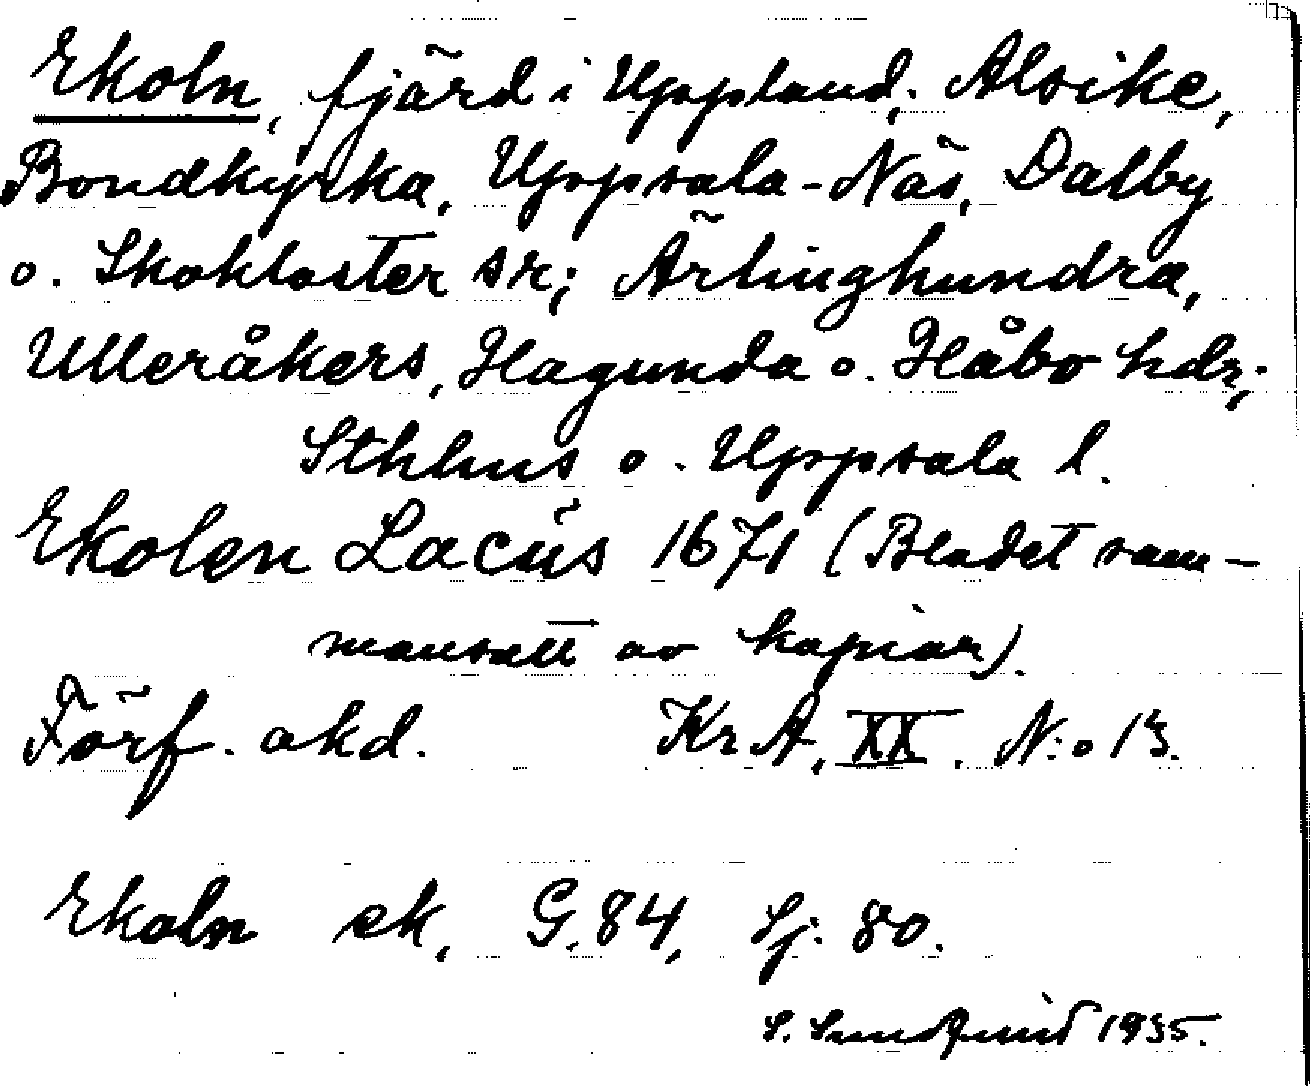 Ekoln, fjärd i Uppland; Alsike,
Bondkyrka, Uppsala-Näs, Dalby
o. Skokloster sn; Ärlinghundra,
Ulleråkers, Hagunda o. Håbo hdr;
Sthlms o. Uppsala l.
Ekolen Lacus 1671 (Bladet sam-
mansatt av kopior).
Förf. okd. Kr A, XX. N:o 13.
Ekoln ek, G. 84, Sj: 80.
S. Sundquist 1935.